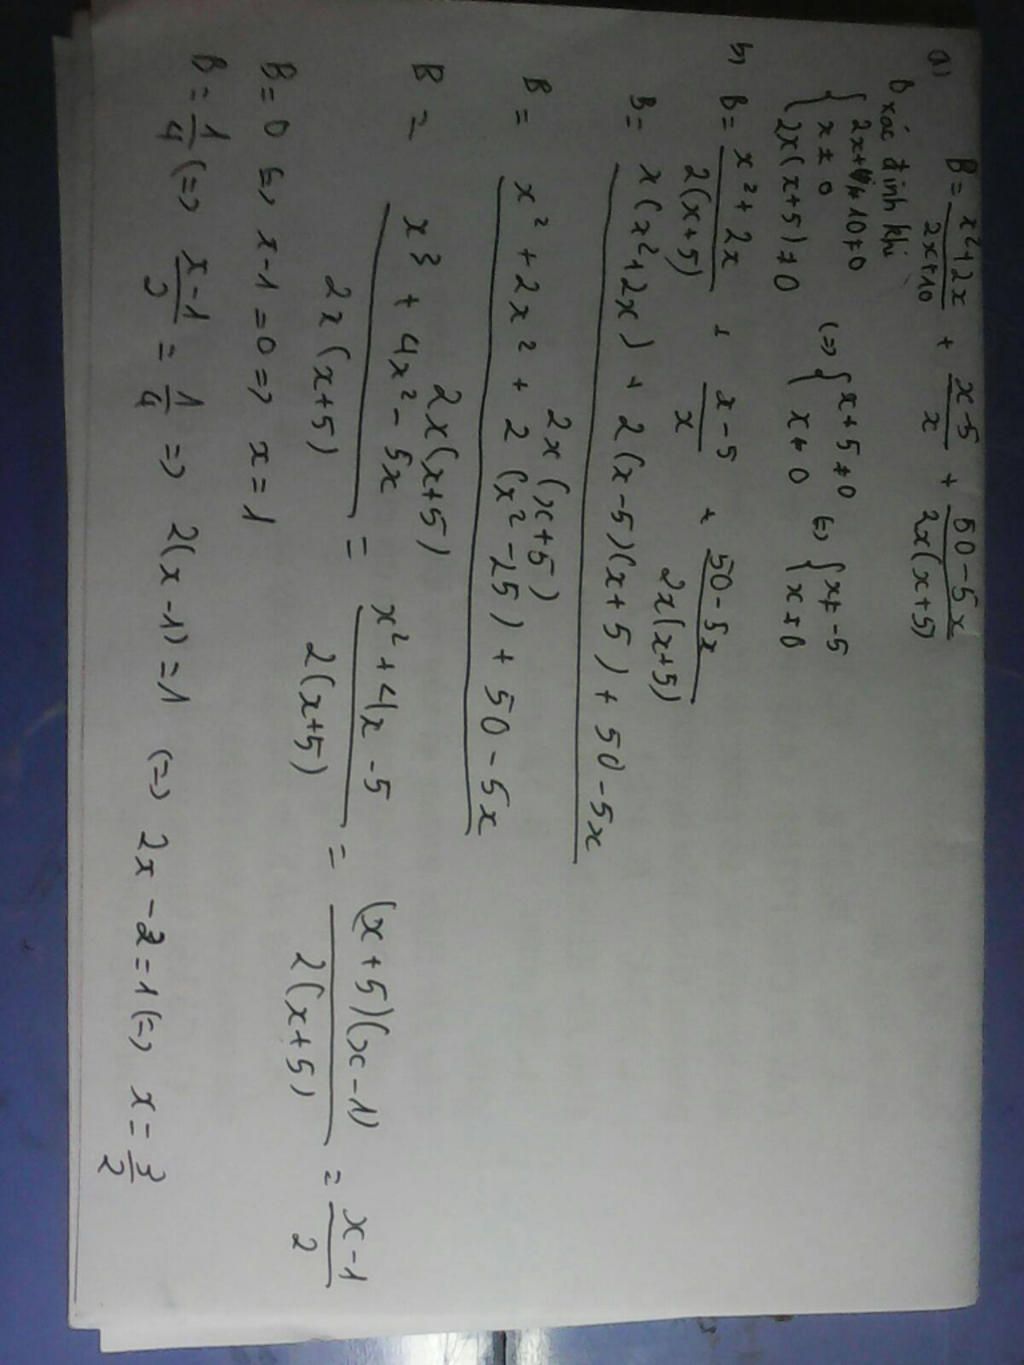 a) B = x²+2x / 2x+10 + x-5 / x + 50-5x / 2x(x+5)
B xác định khi
{ 2x+10≠0 (=> { x+5≠0 (=> { x≠-5
x≠0 x≠0 x≠0
2x(x+5)≠0
b) B = x²+2x / 2(x+5) + x-5 / x + 50-5x / 2x(x+5)
B = x(x²+2x) + 2(x-5)(x+5) + 50-5x / 2x(x+5)
B = x²+2x²+2(x²-25)+50-5x / 2x(x+5)
B = x³+4x²-5x / 2x(x+5) = x²+4x-5 / 2(x+5) = (x+5)(x-1) / 2(x+5) = x-1 / 2
B=0 (=> x-1=0 => x=1
B = 1/4 (=> x-1 / 2 = 1/4 => 2(x-1)=1 (=> 2x-2=1 (=> x = 3/2